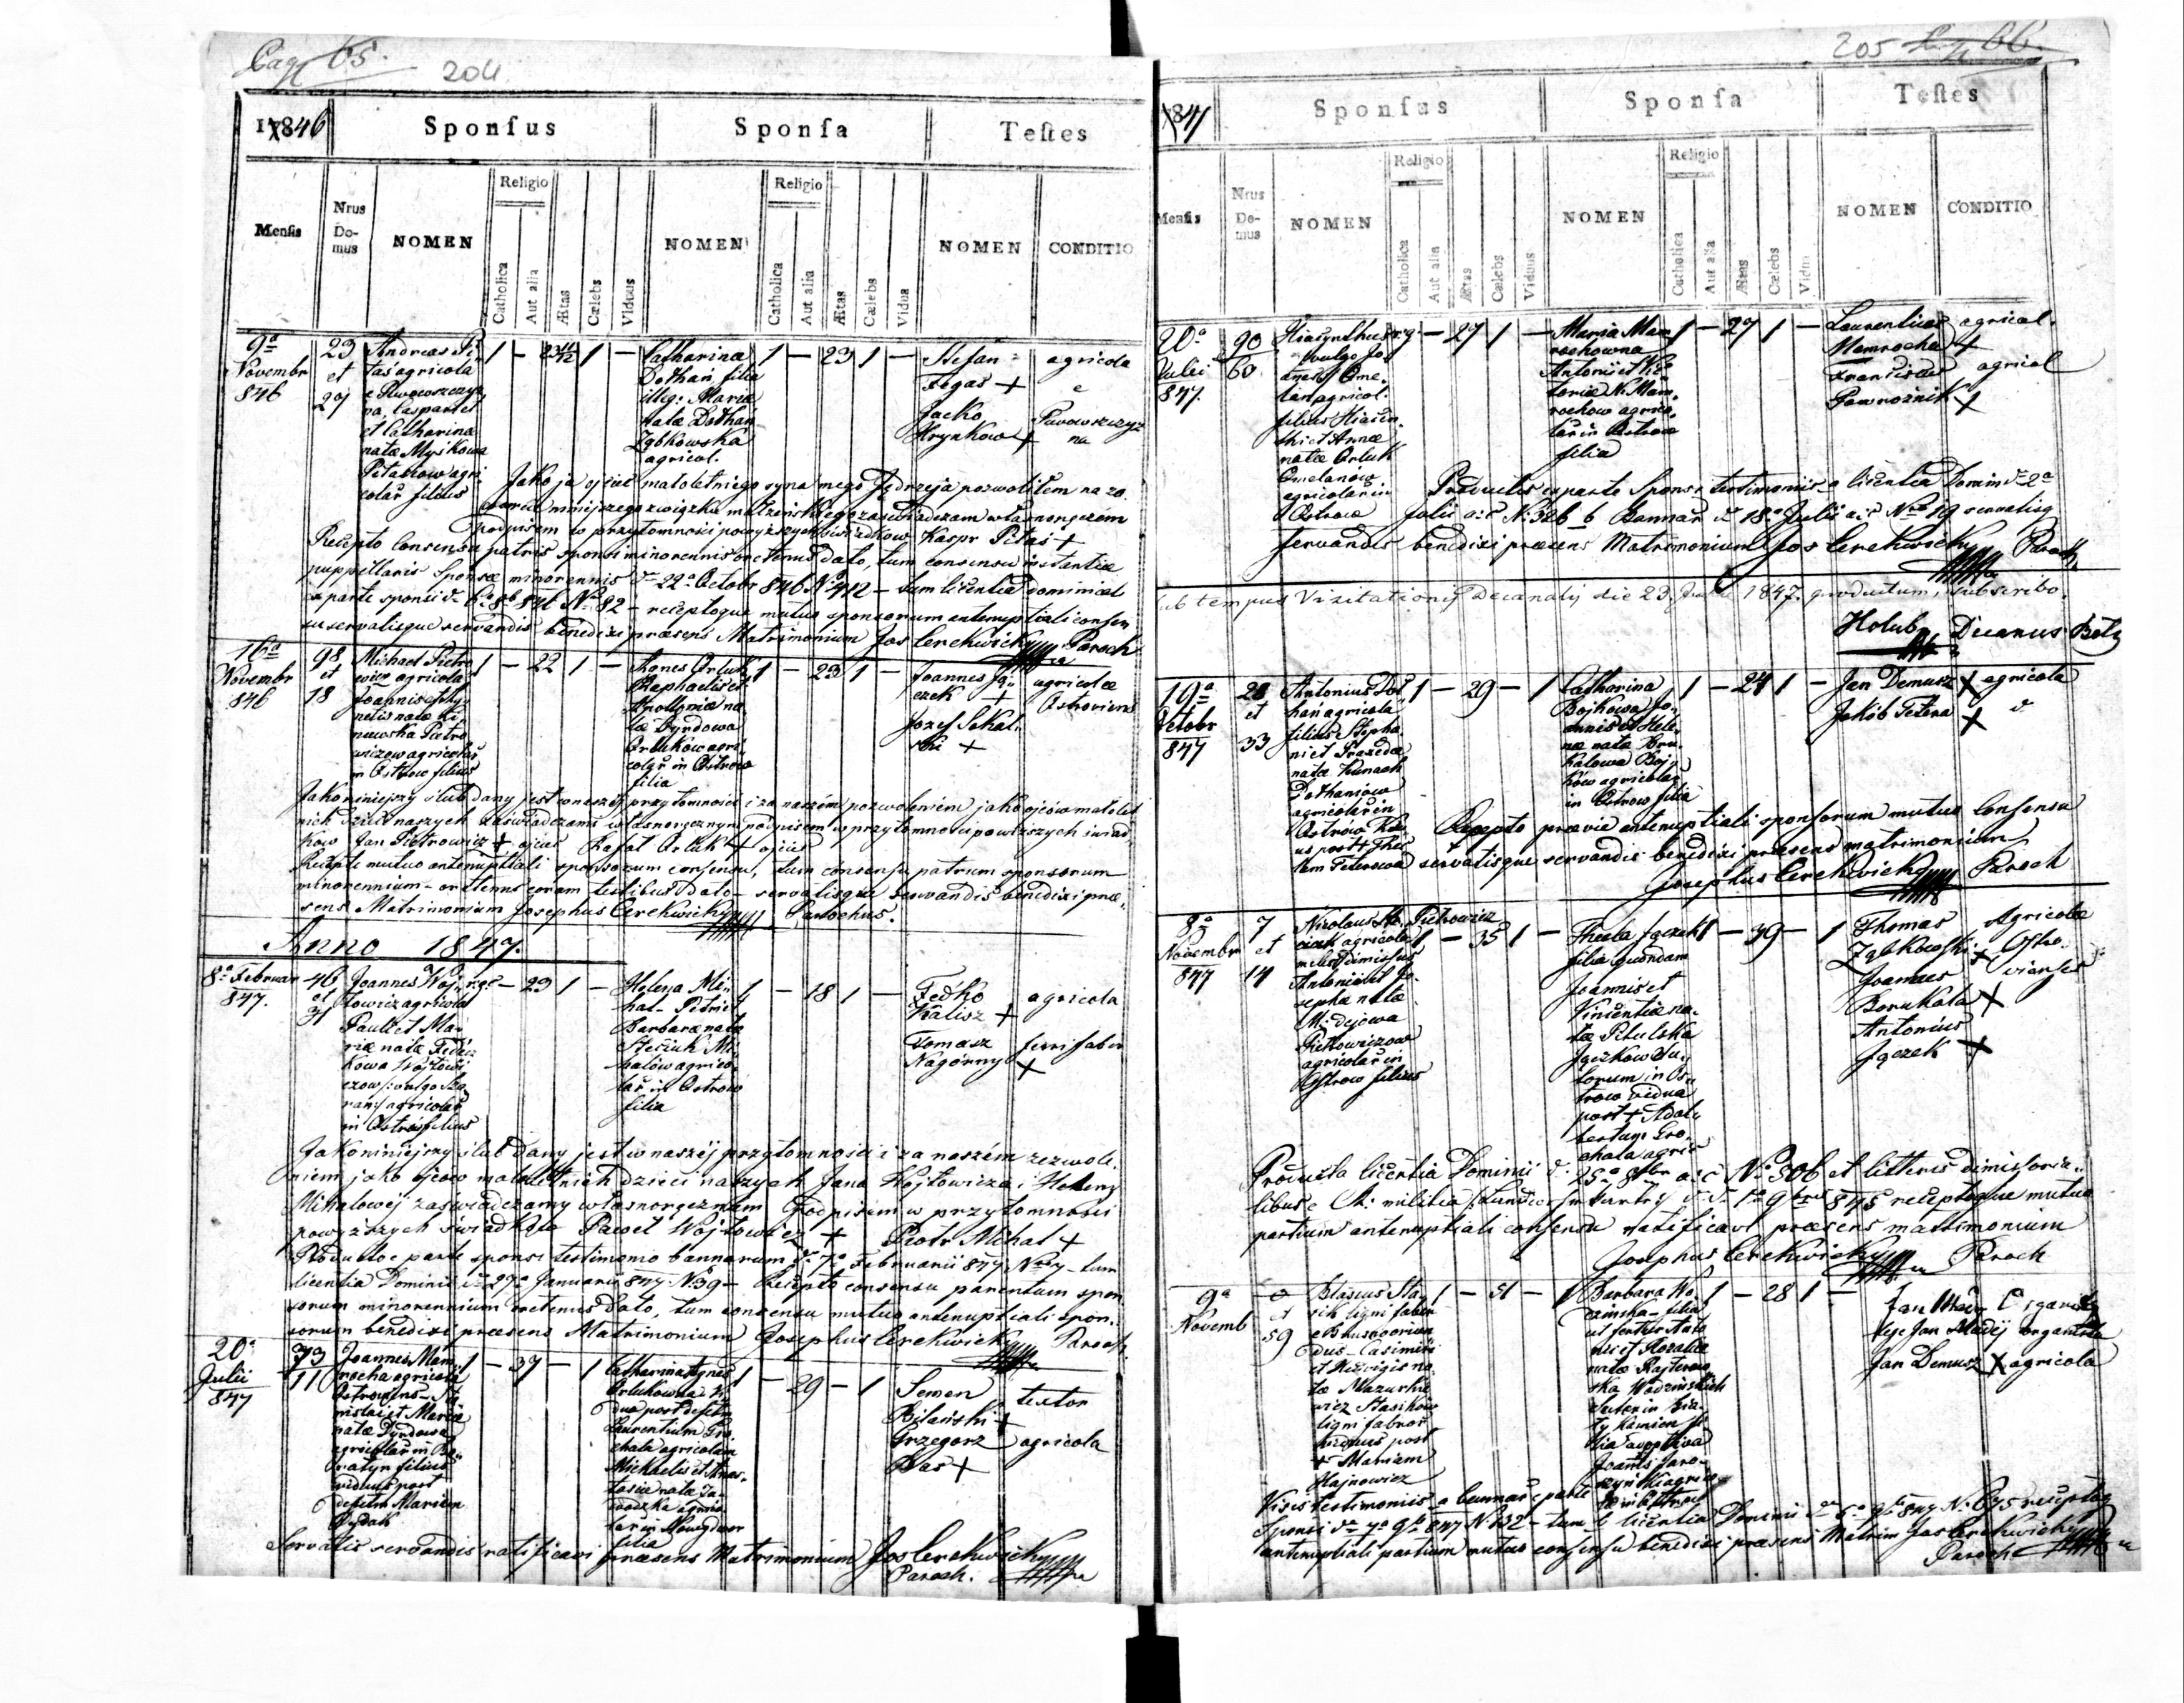 Pag 65.
204
1846
Sponſus
Sponſa
Teſtes
Menſis
Nrus Domus
NOMEN
Religio
Catholica
Aut alia
Ætas
Cælebs
Viduus
NOMEN
Religio
Catholica
Aut alia
Ætas
Cælebs
Vidua
NOMEN
CONDITIO
9a
Novembr
846
23
et
Andreas Pi
tas agricola
Casparis
et Catharina
natæ Myskowa
Pitasow agri
colar filius
1 – 23 11/12 1 –
Catharina
Dothań filia
illeg: Maria
nata Dothań
Ząbkowska
agricol.
1 – 23 1 –
Stefan
Fegas +
Jacko
Hrynkow +
agricola
e
Jako ja ojciec małoletniego syna mego Jędrzeja pozwoliłem na za
warcie niniejszego związku małżeńskiego zaświadczam własnoręcznem
podpisem w przytomności powyższych świadków Kaspr Pitaś +
Recepto consensu patris sponsi minorennis oretenus dato, tum consensu instantiæ
puppillaris Sponsæ minorennis de 22a Octobr 846 No 412 – tum licentia dominical
ex parte sponsi de 6a 8b 846 No 82 – receptoque mutuo sponsorum antenuptiali consen
su servatisque servandis benedixi præsens Matrimonium Jos Cerekwicky Paroch
16a
Novembr
846
98
et
18
Michael Pietro
wicz agricola
Joannis et Ag
netis natæ Ki
newska Pietro
wiczow agricolar
in Ostrow filius
1 – 22 1 –
Agnes Orluk
Raphaelis et
Apolloniæ na
tæ Dyrdowa
Orlukow agri
colar in Ostrow
filia
1 – 23 1 –
Joannes Ją
czek +
Jozef Sokal
ski +
agricolæ
Ostroviens
Jako niniejszy ślub dany jest w naszej przytomności i za naszem pozwoleniem jako ojców małolet
nich dzieci naszych zaświadczamy własnoręcznym podpisem w przytomności powyższych świad
ków Jan Pietrowicz + ojciec Rafał Orluk + ojciec
Recepto mutuo antenuptiali sponsorum consensu, tum consensu patrum sponsorum
minorennium – oretenus coram testibus dato – servatisque servandis benedixi præ
sens Matrimonium Josephus Cerekwicky Parochus.
Anno 1847.
8a Februar
847.
46
et
31
Joannes Woj
towicz agricola
Pauli et Ma
riæ natæ Fedcz
kowa Wojtowi
czow /: vulgo Sza
ran :/ agricolar
in Ostrow filius
r.g. – 23 1 –
Helena Mi
hal – Petri et
Barbaræ natæ
Steciuk Mi
halow agrico
lar in Ostrow
filia
1 – 18 1 –
Fedko
Kalisz +
Tomasz
Nagórny +
agricola
ferri faber
Jako niniejszy ślub dany jest w naszej przytomności i za naszém zezwole
niem jako ojców małoletnich dzieci naszych Jana Wojtowicza i Heleny
Mihalowej zaświadczamy własnoręcznem podpisem w przytomności
powyższych świadków Paweł Wojtowicz + Piotr Mihal +
Producto e parte sponsi testimonio bannorum de 7a Februarii 847 Nro 7 – tum
licentia Dominii de 27a Januarii 847 No 39 – Recepto consensu parentum spon
sorum minorennium oretenus dato, tum consensu mutuo antenuptiali spon
sorum benedixi præsens Matrimonium Josephus Cerekwicky Paroch.
20a
Julii
847
73
11
Joannes Mam
rocha agricola
Ostroviens – Sta
nislai et Mariæ
natæ Dyrdowa
agricolar in Ba
ratyn filius
viduus post
defctm Mariam
Dydak
1 – 37 – 1
Catharina Agnes
Orlukowska Vi
dua post defctm
Laurentium Gro
chala agricolam
Michaelis et Anas
tasiæ natæ Za
wodzka agrico
lar in Nowydwor
filia
1 – 29 – 1
Semen
Bilański +
Grzegorz
Bas +
textor
agricola
Servatis servandis ratificavi præsens Matrimonium Jos Cerekwicky
Paroch.
205
66.
1847
Sponſus
Sponſa
Teſtes
Menſis
Nrus Domus
NOMEN
Religio
Catholica
Aut alia
Ætas
Cælebs
Viduus
NOMEN
Religio
Catholica
Aut alia
Ætas
Cælebs
Vidua
NOMEN
CONDITIO
20a
Julii
847.
90
60
Hiacynthus
/vulgo Jo
annes/ Ome
lan agricol.
filius Hiacin
thi et Annæ
natæ Orluk
Omelanów
agricolar in
Ostrow
r.g. – 27 1 –
Maria Mam
rochowna
Antonii et Vic
toriæ N. Mam
rochow agrico
lar in Ostrow
filia
1 – 27 1 –
Laurentius
Mamrocha +
Franciscus
Powroźnik +
agricol.
agricol
Productis ex parte Sponsi testimoniis a licentia Domin de 2a
Julii a.c. No 326 b Bannar de 18a Julii a.c. Nro 19 servatisq
servandis benedixi præsens Matrimonium Jos Cerekwicky Paroch
Sub tempus Vizitationis Decanalis die 23 1847. productum, subscribo.
Holub Decanus Belz
19a
Octobr
847
28
et
33
Antonius Dot
hań agricola
filius Stepha
ni et Praxedæ
natæ Kunach
Dothaniow
agricolar in
Ostrow Vidu
us post + Thec
lam Teterowa
1 – 29 – 1
Catharina
Bojkowa Jo
annis et Hele
næ natæ Boru
kalowa Boj
ków agricolar
in Ostrow filia
1 – 24 1 –
Jan Demusz +
Jakób Tetera +
agricola
Recepto prævie antenuptiali sponsorum mutuo Consensu
servatisque servandis benedixi præsens matrimonium
Josephus Cerekwicky Paroch
8a
Novembr
847
7
et
14
Nicolaus Pietrowicz
agricola
miles dimissus
Antonii et Jo
sephæ natæ
Mo: dejowa
Pietrowiczow
agricolar in
Ostrow filius
1 – 35 1 –
Thecla Jączek
filia quondam
Joannis et
Vincentiæ na
tæ Pikulska
Jączkow Su
torum in Os
trow vidua
post + Adal
bertum Gro
chala agric
1 – 39 – 1
Thomas
Ząbkowski +
Joannes
Borukala +
Antonius
Jączek +
Agricolæ
Ostro
vienses
Producta licentia Dominii de 25a 8br a.c. No 306 et litteris dimissoria
libus e C: militia de 1a 9bris 845 receptoque mutuo
partium antenuptiali consensu ratificavi præsens matrimonium
Josephus Cerekwicky Paroch
9a
Novemb
et
59
Blasius Sta
sik ligni faber
duc Casimiri
et Hedvigis na
tæ Mazurkie
wicz Stasików
ligni fabror
viduus post
+ Mariam
Hajnowicz
1 – 51 – 1
Barbara Wo
zinska filia
nii et Rosaliæ
natæ
Kamien fi
lia adoptiva
Joannis Jaro
1 – 28 1 –
Jan Madej Organista
Jan Madej organista
Jan Demusz + agricola
Visis testimoniis a bannar e parte
Sponsi de 7a 9br 847 No 132 – tum b licentia Dominii de 6a 9br 847 No 675 receptoq
antenuptiali partium mutuo consensu benedixi præsens Matrim Jos Cerekwicky
Paroch